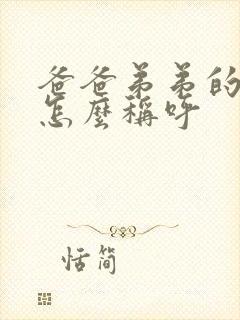 爸爸弟弟的
怎麼稱呼
恬簡